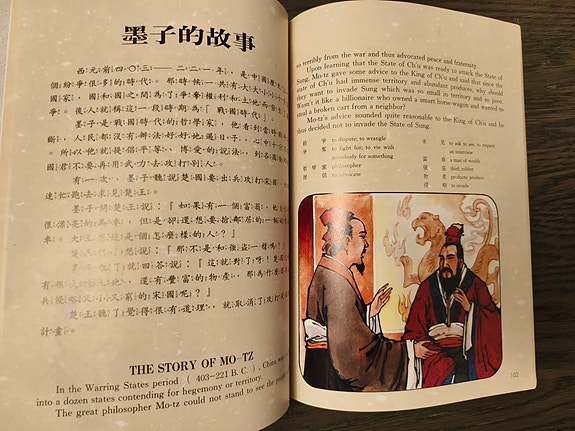 墨子的故事
西元前四〇三——二二一年，是中國歷史
個紛爭很多的時代。那時候一共有大大小小
國家，國和國之間為了爭奪權利和土地
爭。後人就稱這一段時期為「戰國時代」
墨子是戰國時代的哲學家，他看到
斷，人民都沒有辦法好好過日子，心中十
。所以他就提倡和平、博愛的說法，到各國
國君不要再用武力去攻打別人。
有一次，墨子聽說楚國要出兵攻打宋國
速忙跑去求見楚王。
墨子問楚王說：「如果有一個富翁，他
很漂亮的馬車，但是卻還想要偷鄰居的一
車，大王
楚王說：「那不是和強盜一樣嗎！
墨子回答說：「這就對了呀！楚國
有還有豐富的物產，那為什麼
兵侵又小又窮的宋國呢？」
楚王聽了覺得很有道理，就取消了攻打
計畫。
THE STORY OF MO-TZ
In the Warring States period ( 403-221 B. C.), China
into a dozen states contending for hegemony or territory.
The great philosopher Mo-tz could not stand to see the
so terribly from the war and thus advocated peace and fraternity.
Upon learning that the State of Ch'u was ready to attack the State of
Sung, Mo-tz gave some advice to the King of Ch'u and said that since the
state of Ch'u had immense territory and abundant produce, why should
they want to invade Sung which was so small in territory and so poor.
Wasn't it like a billionaire who owned a smart horse-wagon and wanted to
steal a broken cart from a neighbor?
Mo-tz's advice sounded quite reasonable to the King of Ch'u and he
thus decided not to invade the State of Sung.
紛爭 to dispute; to wrangle
爭奪 to fight for; to vie with
somebody for something
哲學家 philosopher
提倡 to advocate
求見 to ask to see; to request
an interview
富翁 a man of wealth
強盜 thief, robber
物產 products produce
侵略 to invade
102